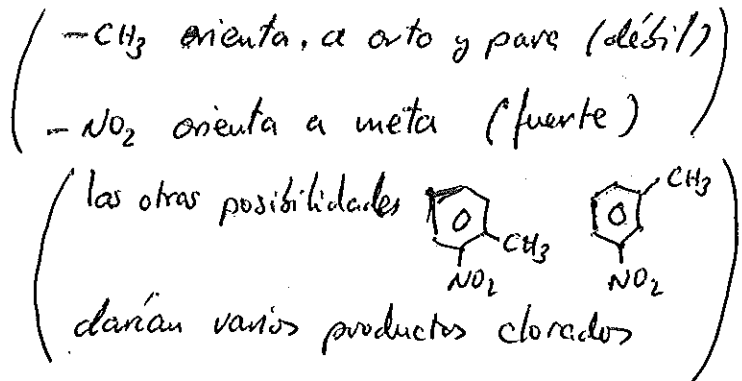 -CH₃ orienta, a orto y para (débil)
-NO₂ orienta a meta (fuerte)
las otras posibilidades
CH₃ NO₂
CH₃ NO₂
darían varios productos clorados